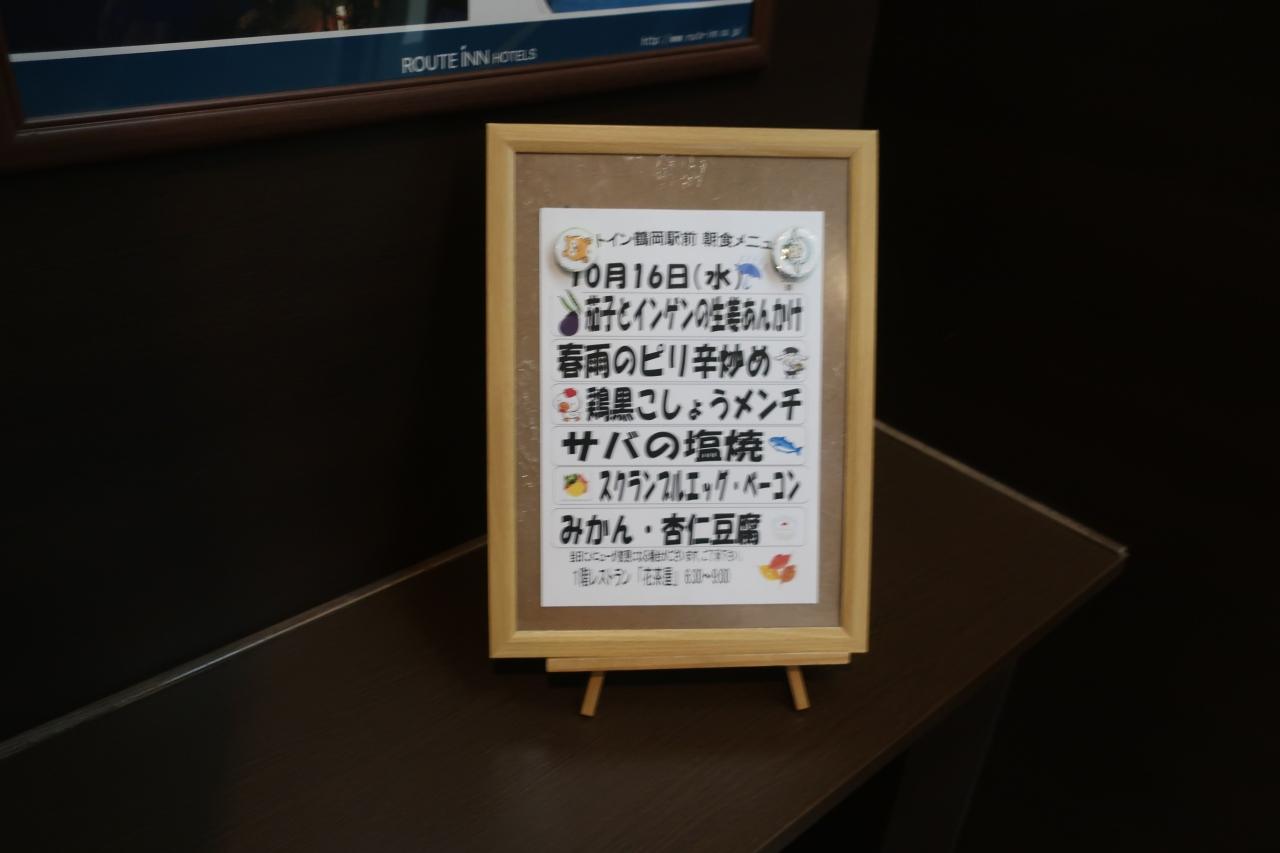 ROUTE INN HOTELS
http://www.route-inn.co.jp/
トイン鶴岡駅前 朝食メニュ
10月16日(水)
茄子とインゲンの生姜あんかけ
春雨のピリ辛炒め
鶏黒こしょうメンチ
サバの塩焼
スクランブルエッグ・ベーコン
みかん・杏仁豆腐
当日にメニューが変更になる場合がございます。ご了承下さい。
1階レストラン「花茶屋」 6:30～9:00